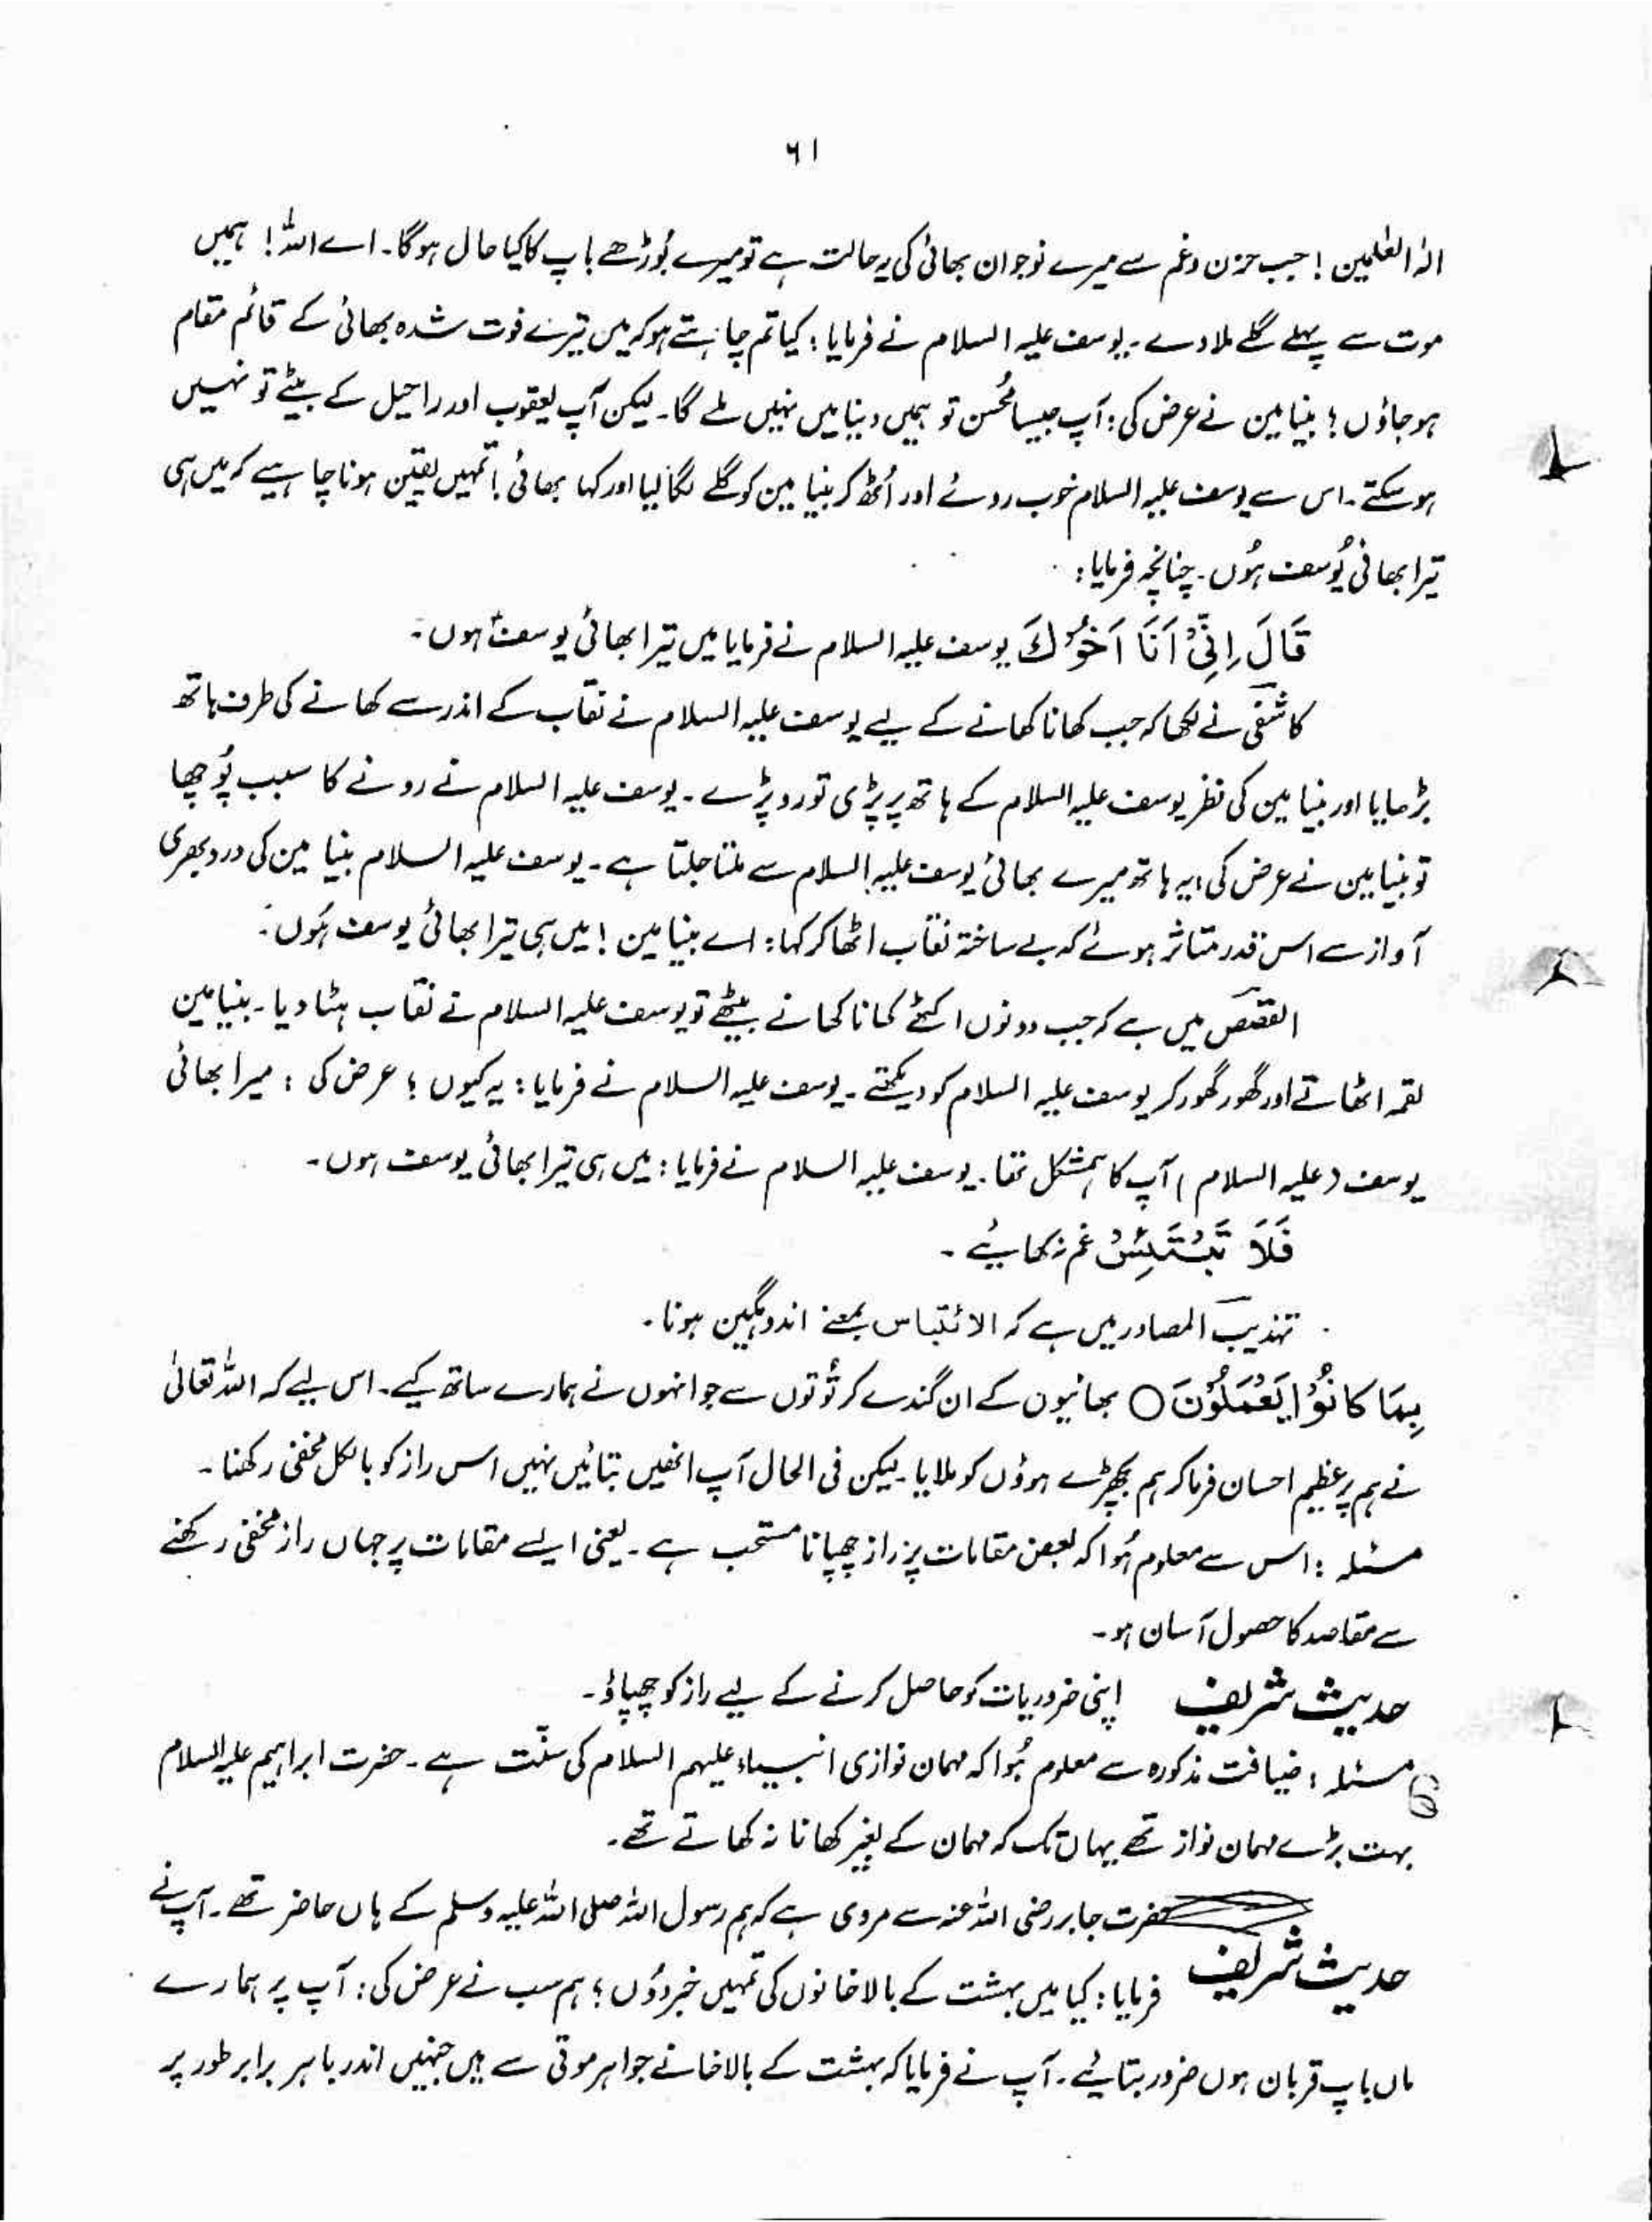 ٦١
الٰہ العٰلمین! جب حزن و غم سے میرے نوجوان بھائی کی یہ حالت ہے تو میرے بُوڑھے باپ کا کیا حال ہوگا۔ اے اللہ! ہمیں
موت سے پہلے گلے ملا دے۔ یوسف علیہ السلام نے فرمایا: کیا تم چاہتے ہو کہ میں تیرے فوت شدہ بھائی کے قائم مقام
ہو جاؤں؟ بنیامین نے عرض کی: آپ جیسا مُحسن تو ہمیں دنیا میں نہیں ملے گا۔ لیکن آپ یعقوب اور راحیل کے بیٹے تو نہیں
ہو سکتے۔ اس سے یوسف علیہ السلام خوب روئے اور اُٹھ کر بنیامین کو گلے لگا لیا اور کہا بھائی! تمہیں یقین ہونا چاہیے کہ میں ہی
تیرا بھائی یُوسف ہُوں۔ چنانچہ فرمایا:
قَالَ اِنِّیْ اَنَا اَخُوْكَ یوسف علیہ السلام نے فرمایا میں تیرا بھائی یوسف ہوں۔
کاشفی نے لکھا کہ جب کھانا کھانے کے لیے یوسف علیہ السلام نے نقاب کے اندر سے کھانے کی طرف ہاتھ
بڑھایا اور بنیامین کی نظر یوسف علیہ السلام کے ہاتھ پر پڑی تو رو پڑے۔ یوسف علیہ السلام نے رونے کا سبب پُوچھا
تو بنیامین نے عرض کی، یہ ہاتھ میرے بھائی یوسف علیہ السلام سے ملتا جلتا ہے۔ یوسف علیہ السلام بنیامین کی درد بھری
آواز سے اس قدر متاثر ہوئے کہ بے ساختہ نقاب اٹھا کر کہا: اے بنیامین! میں ہی تیرا بھائی یوسف ہُوں۔
القصص میں ہے کہ جب دونوں اکٹھے کھانا کھانے بیٹھے تو یوسف علیہ السلام نے نقاب ہٹا دیا۔ بنیامین
لقمہ اٹھاتے اور گھور گھور کر یوسف علیہ السلام کو دیکھتے۔ یوسف علیہ السلام نے فرمایا: یہ کیوں؟ عرض کی: میرا بھائی
یوسف (علیہ السلام) آپ کا ہمشکل تھا۔ یوسف علیہ السلام نے فرمایا: میں ہی تیرا بھائی یوسف ہوں۔
فَلَا تَبْتَئِسْ غم نہ کھائیے۔
تہذیب المصادر میں ہے کہ الابتئاس بمعنے اندوہگین ہونا۔
بِمَا كَانُوْا یَعْمَلُوْنَ ○ بھائیوں کے ان گندے کرتُوتوں سے جو انہوں نے ہمارے ساتھ کیے۔ اس لیے کہ اللہ تعالیٰ
نے ہم پر عظیم احسان فرما کر ہم بچھڑے ہوؤں کو ملایا۔ لیکن فی الحال آپ انھیں بتائیں نہیں اس راز کو بالکل مخفی رکھنا۔
مسئلہ: اس سے معلوم ہُوا کہ بعض مقامات پر راز چھپانا مستحب ہے۔ یعنی ایسے مقامات پر جہاں راز مخفی رکھنے
سے مقاصد کا حصول آسان ہو۔
حدیث شریف اپنی ضروریات کو حاصل کرنے کے لیے راز کو چھپاؤ۔
مسئلہ: ضیافت مذکورہ سے معلوم ہُوا کہ مہمان نوازی انبیاء علیہم السلام کی سنّت ہے۔ حضرت ابراہیم علیہ السلام
بہت بڑے مہمان نواز تھے یہاں تک کہ مہمان کے بغیر کھانا نہ کھاتے تھے۔
حضرت جابر رضی اللہ عنہ سے مروی ہے کہ ہم رسول اللہ صلی اللہ علیہ وسلم کے ہاں حاضر تھے۔ آپ نے
حدیث شریف فرمایا: کیا میں بہشت کے بالاخانوں کی تمہیں خبر دُوں؟ ہم سب نے عرض کی: آپ پر ہمارے
ماں باپ قربان ہوں ضرور بتائیے۔ آپ نے فرمایا کہ بہشت کے بالاخانے جواہر موتی سے ہیں جنہیں اندر باہر برابر طور پر